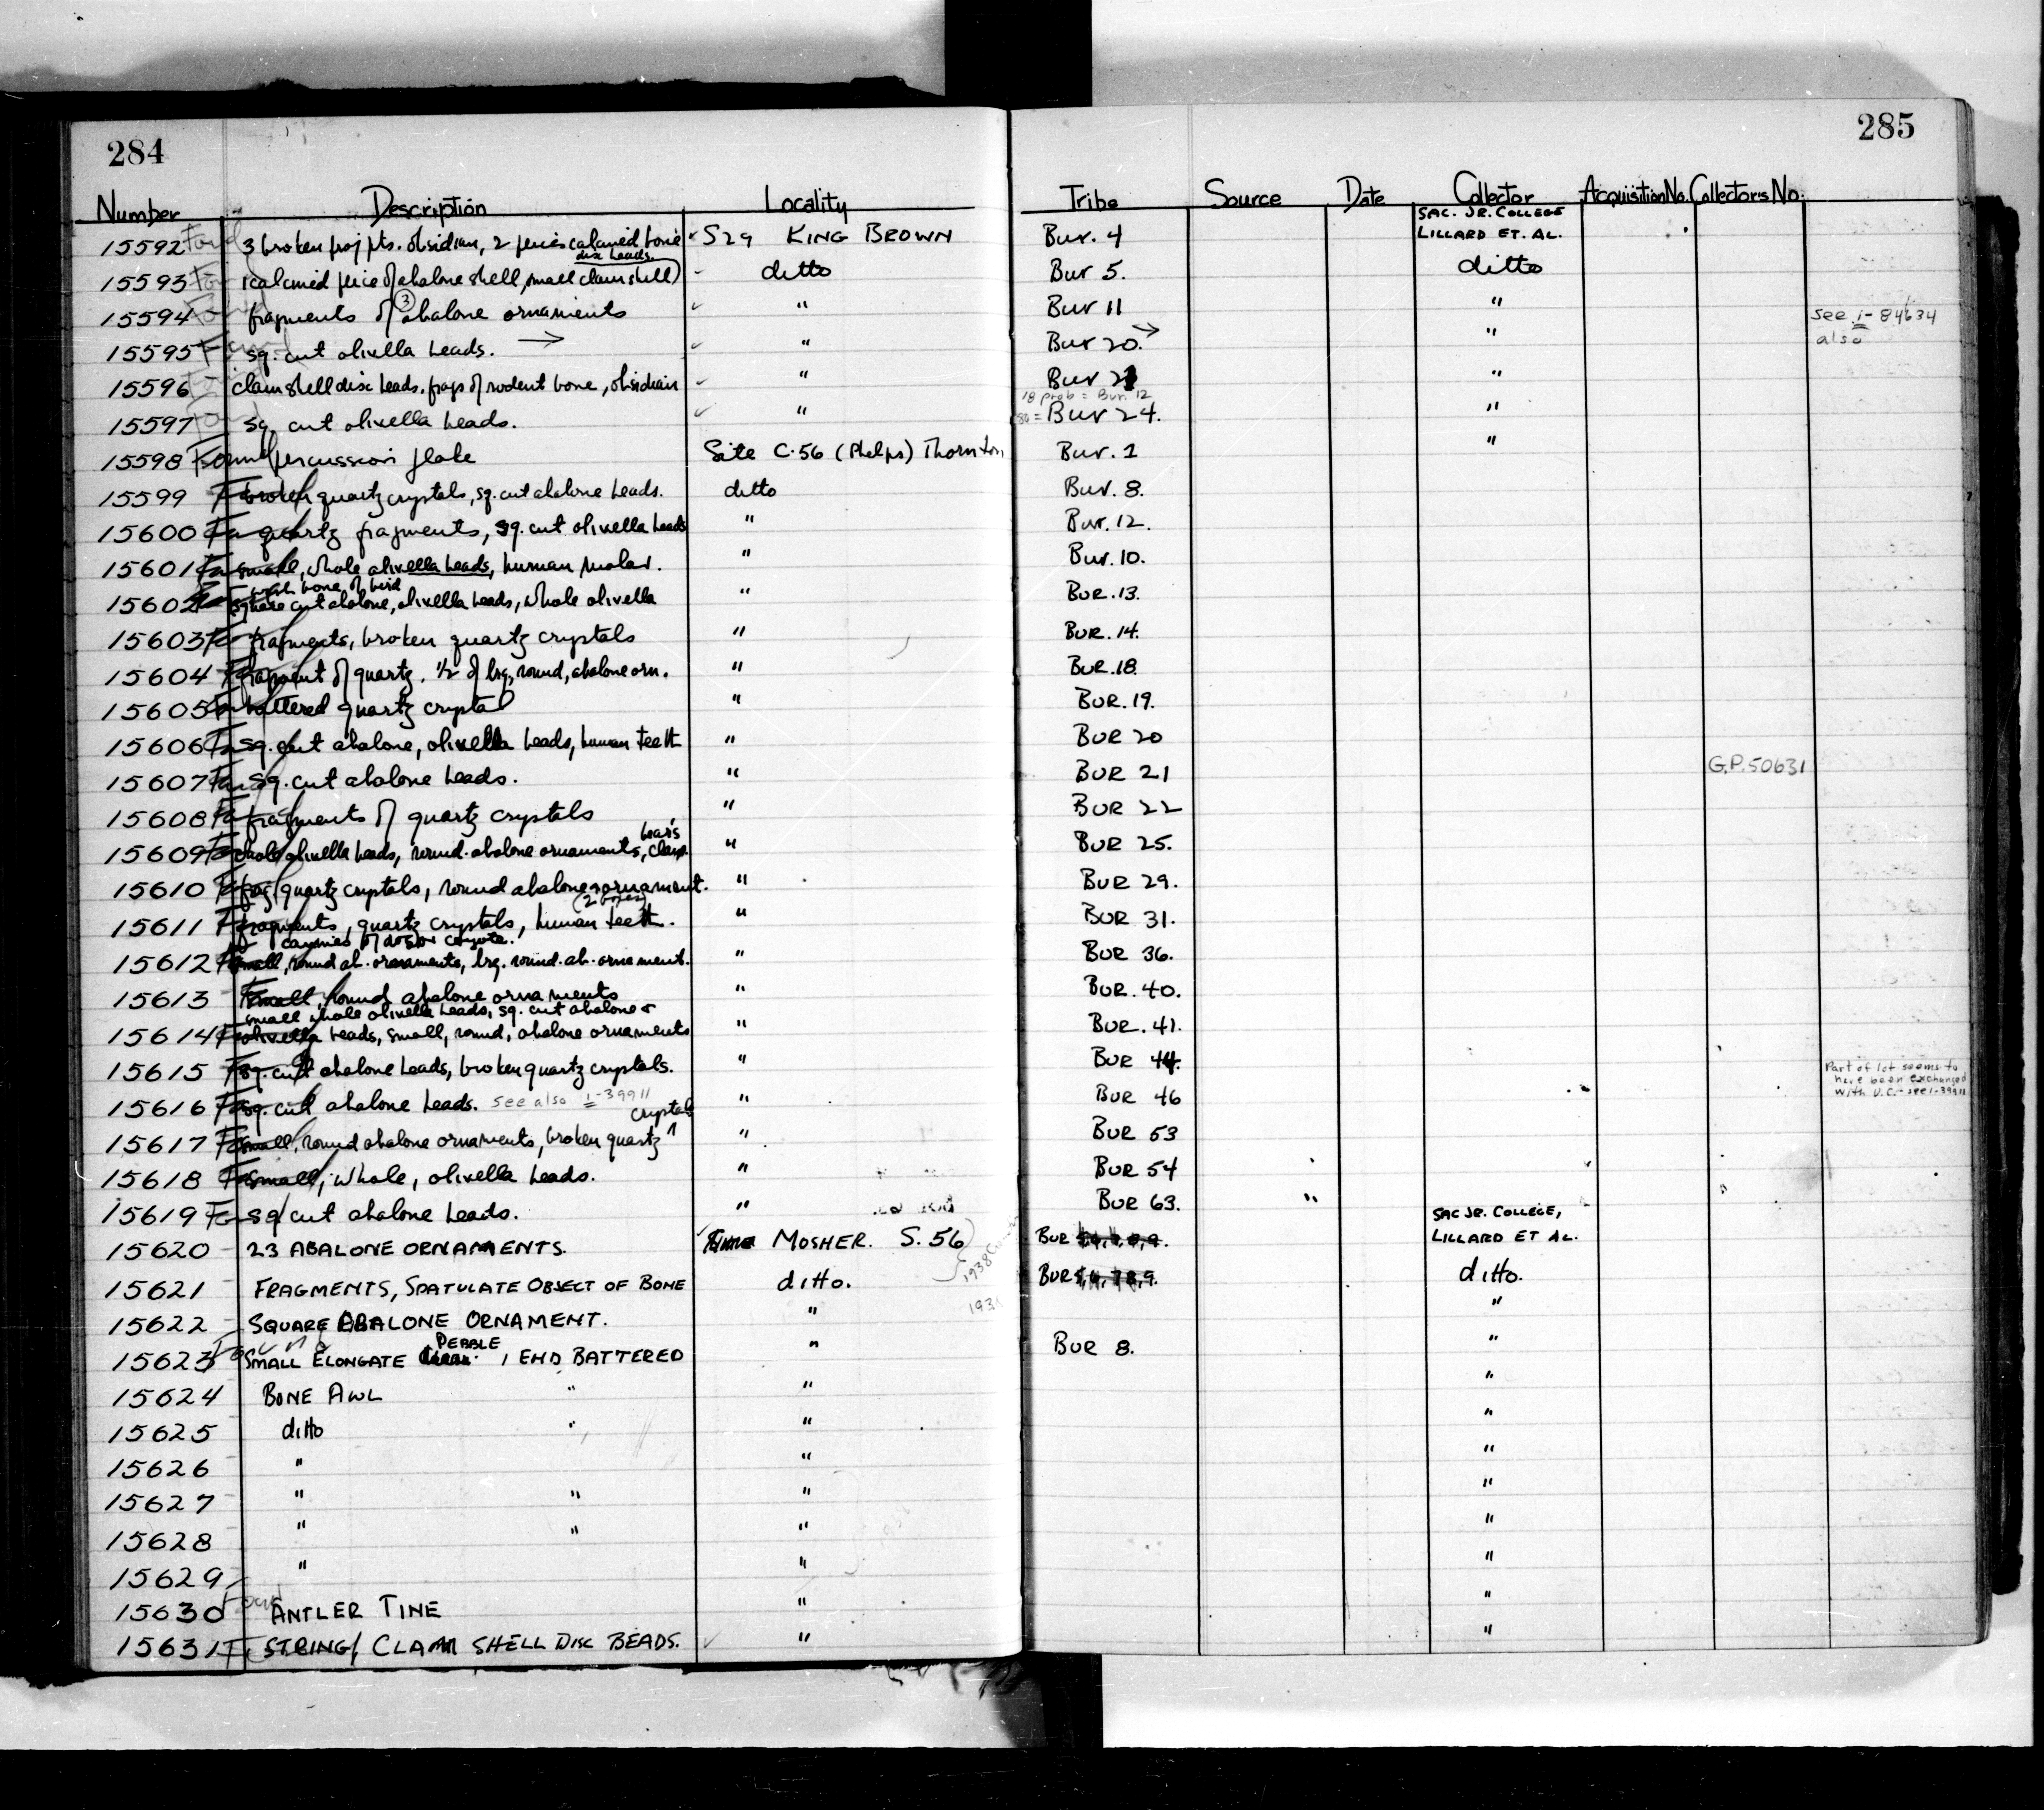 284
285
Number Description Locality Tribe Source Date Collector Acquisition No. Collectors No.
SAC. JR. COLLEGE
15592 Found 3 broken proj pts. obsidian, 2 pieces calcined bone S29 KING BROWN Bur. 4 LILLARD ET. AL.
disc beads.
15593 1 calcined piece of abalone shell, small clam shell ditto Bur 5. ditto
15594 fragments of (3) abalone ornaments " Bur 11 " see 1-84634
15595 sq. cut olivella beads. → " Bur 20. → " also
15596 clam shell disc beads. frags of rodent bone, obsidian " Bur 21 "
18 prob = Bur. 12
15597 sq. cut olivella beads. " = Bur 24. "
15598 Found percussion flake Site C.56 (Phelps) Thornton Bur. 1 "
15599 broken quartz crystals, sq. cut abalone beads. ditto Bur. 8.
15600 quartz fragments, sq. cut olivella beads " Bur. 12.
15601 small, whole olivella beads, human molar. " Bur. 10.
bone of bird
15602 square cut abalone, olivella beads, whole olivella " Bur. 13.
15603 fragments, broken quartz crystals " BUR. 14.
15604 fragment of quartz. 1/2 of lrg, round, abalone orn. " BUR. 18.
15605 battered quartz crystal " BUR. 19.
15606 sq. cut abalone, olivella beads, human teeth " BUR 20
15607 sq. cut abalone beads. " BUR 21 G.P. 50631
15608 fragments of quartz crystals " BUR 22
bear's
15609 whole olivella beads, round abalone ornaments, claw. " BUR 25.
15610 frag. quartz crystals, round abalone ornament. " BUR 29.
15611 fragments, quartz crystals, human teeth. " BUR 31.
canines of dog or coyote.
15612 small, round ab. ornaments, lrg. round. ab. ornament. " BUR 36.
15613 small, round abalone ornaments " BUR. 40.
small whole olivella beads, sq. cut abalone +
15614 olivella beads, small, round, abalone ornaments " BUR. 41.
15615 sq. cut abalone beads, broken quartz crystals. " BUR 44. Part of lot seems to
have been exchanged
15616 sq. cut abalone beads. see also 1-39911 " BUR 46 with U.C. - see 1-39911
crystals
15617 small, round abalone ornaments, broken quartz ^ " BUR 53
15618 small, whole, olivella beads. " BUR 54
15619 sq cut abalone beads. " BUR 63. "
SAC JR. COLLEGE,
15620 23 ABALONE ORNAMENTS. MOSHER. S. 56 BUR LILLARD ET AL.
1938
15621 FRAGMENTS, SPATULATE OBJECT OF BONE ditto. BUR 5, 6, 7, 8, 9. ditto.
15622 SQUARE ABALONE ORNAMENT. " "
PEBBLE
15623 Found SMALL ELONGATE 1 END BATTERED " BUR 8. "
15624 BONE AWL " " "
15625 ditto " "
15626 " " "
15627 " " " "
15628 " " " "
15629 " " "
15630 Found ANTLER TINE " "
15631 STRING CLAM SHELL DISC BEADS. " "